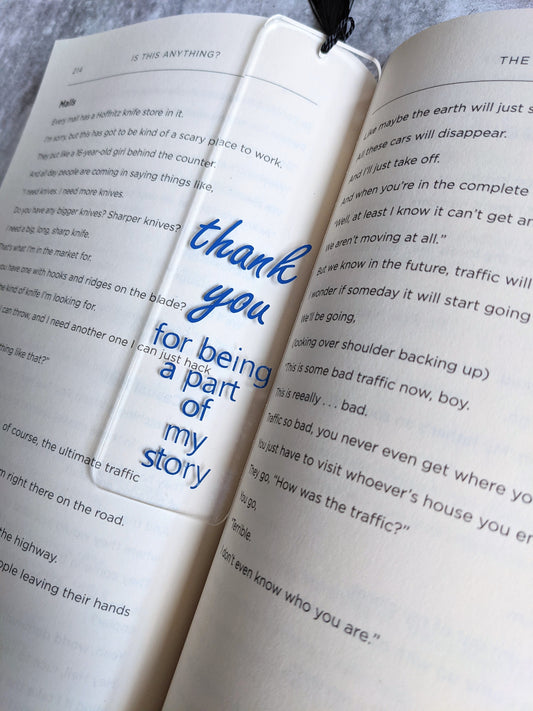 214
IS THIS ANYTHING?
Malls
Every mall has a Hoffritz knife store in it.
I'm sorry, but this has got to be kind of a scary place to work.
They put like a 16-year-old girl behind the counter.
And all day people are coming in saying things like,
"I need knives. I need more knives.
Do you have any bigger knives? Sharper knives?
I need a big, long, sharp knife.
That's what I'm in the market for.
you have one with hooks and ridges on the blade?
the kind of knife I'm looking for.
I can throw, and I need another one I can just hack
thing like that?"
of course, the ultimate traffic
right there on the road.
the highway.
people leaving their hands
thank
you
for being
a part
of
my
story
THE
Like maybe the earth will just s
All these cars will disappear.
And I'll just take off.
And when you're in the complete
"Well, at least I know it can't get any
We aren't moving at all."
But we know in the future, traffic will
I wonder if someday it will start going
We'll be going,
(looking over shoulder backing up)
"This is some bad traffic now, boy.
This is reeally . . . bad.
Traffic so bad, you never even get where yo
You just have to visit whoever's house you en
They go, "How was the traffic?"
You go,
"Terrible.
I don't even know who you are."